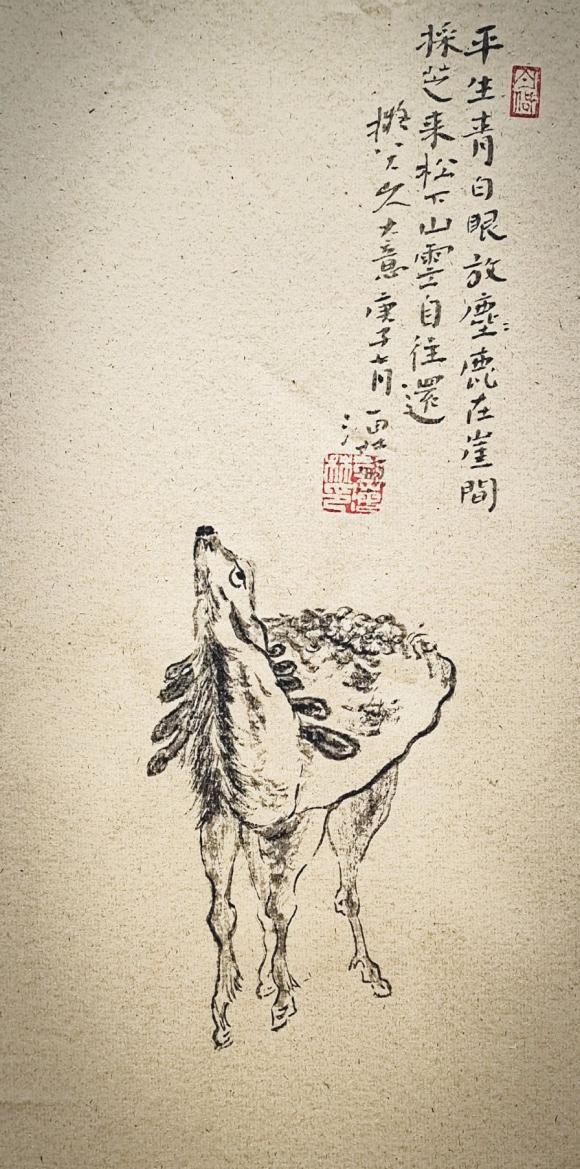 平生青白眼放塵鹿在崖間
採芝来松下山雲自往還
擬八大山人大意庚子